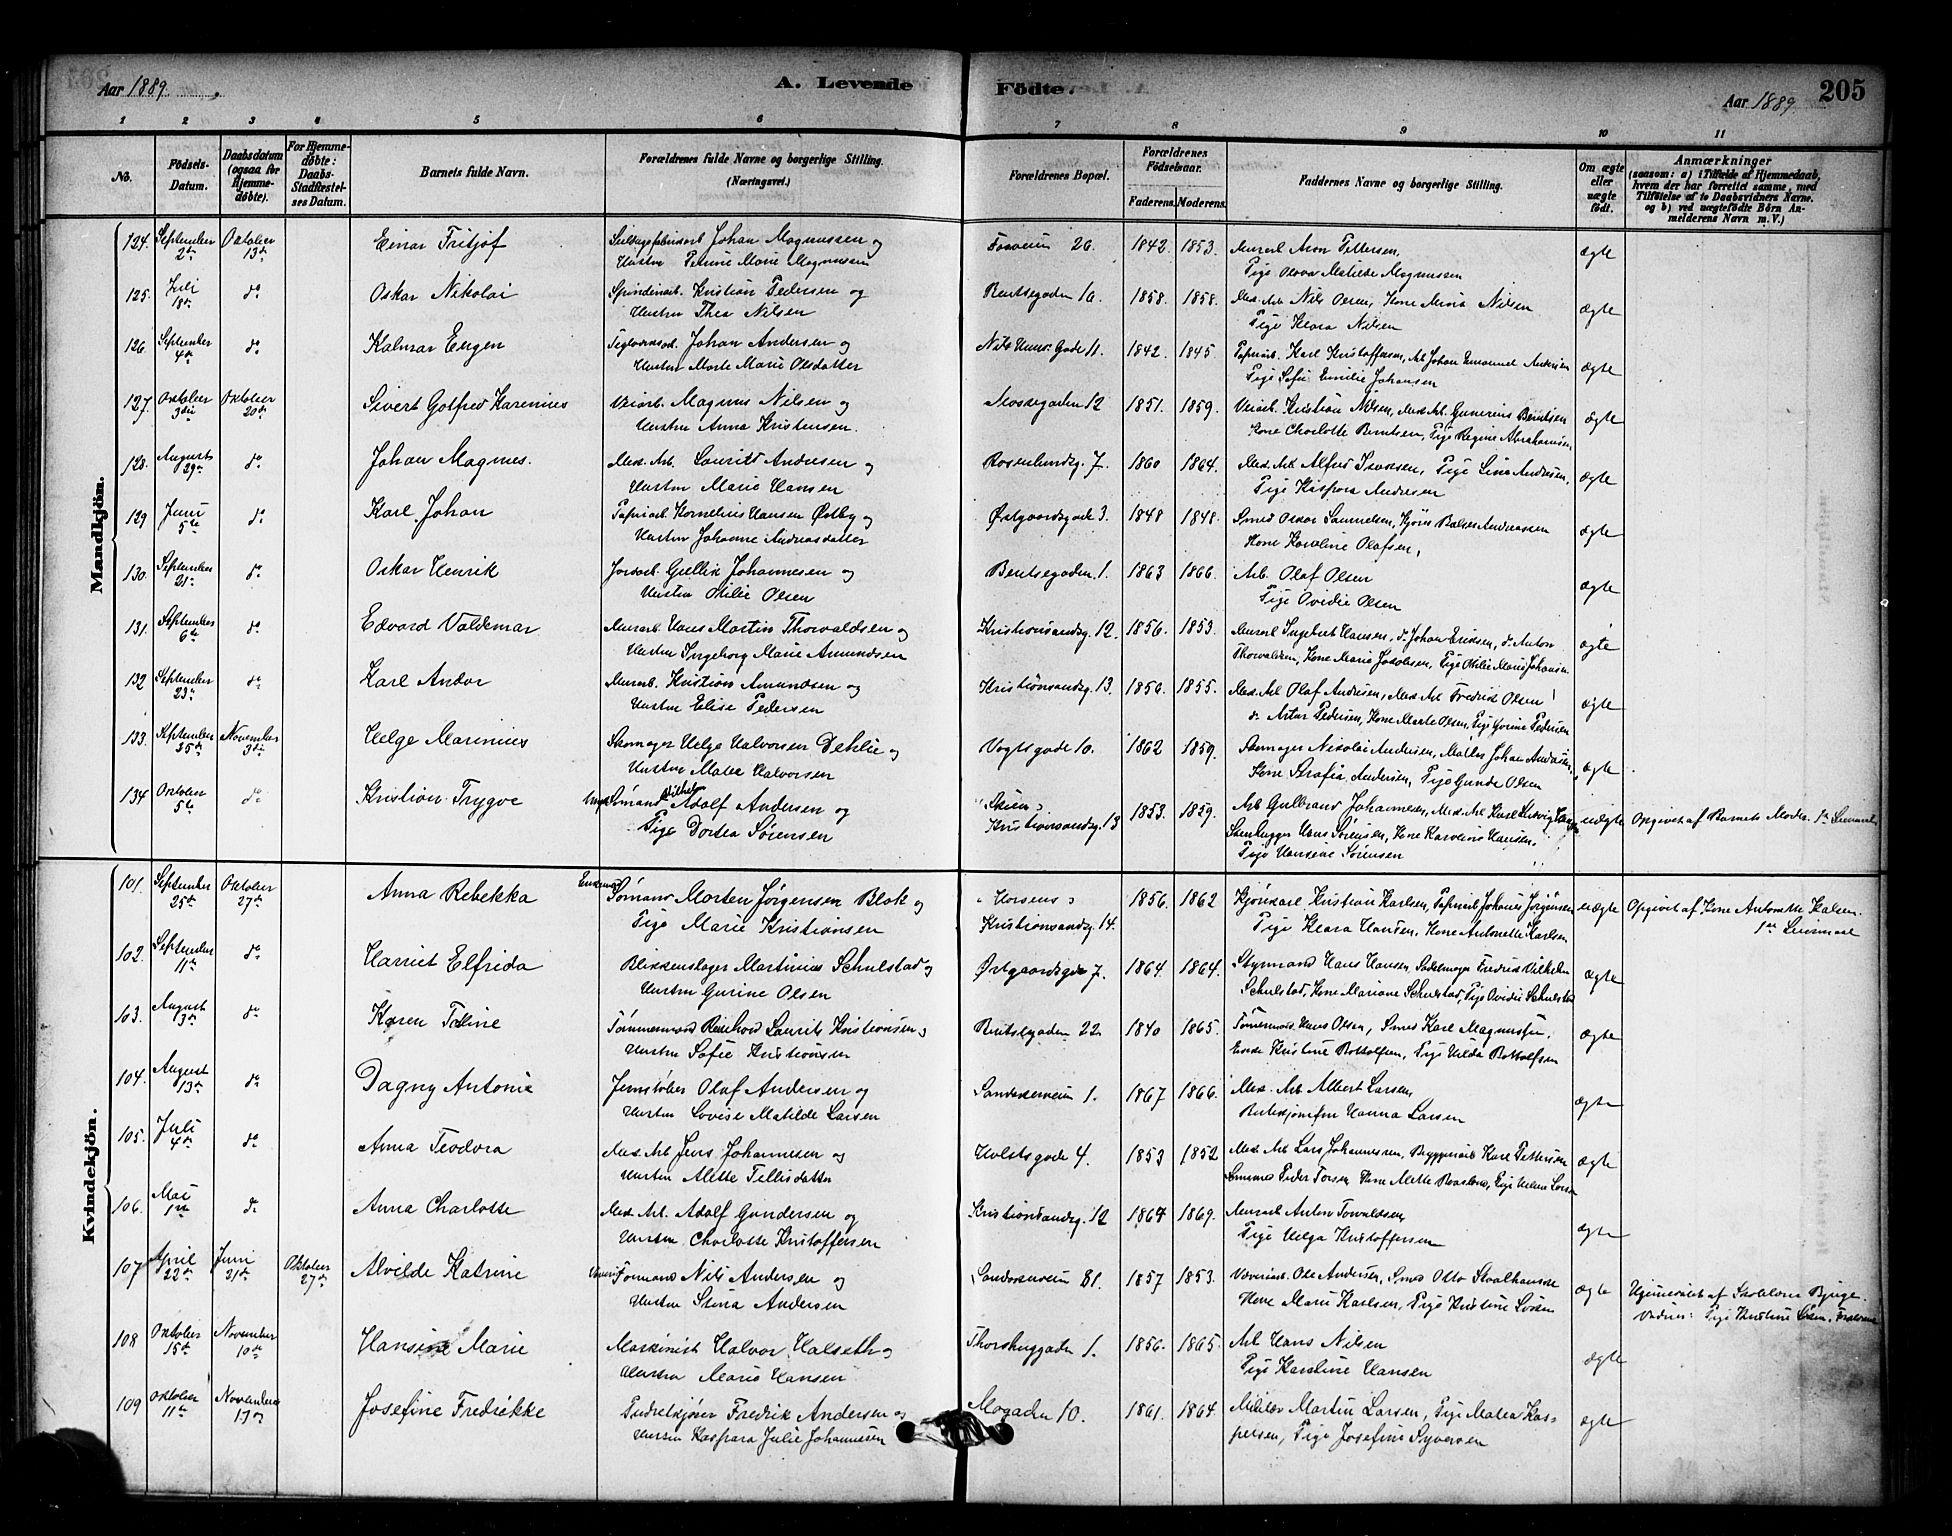 Aar 1889.
A. Levende Fødte.
Aar 1889
205
1 2 3 4 5 6 7 8 9 10 11
No.
Födsels-Datum.
Daabsdatum (ogsaa for Hjemmedøbte).
For Hjemmedøbte: Daabs-Stadfæstelses Datum.
Barnets fulde Navn.
Forældrenes fulde Navne og borgerlige Stilling. (Næringsvei.)
Forældrenes Bopæl.
Forældrenes Födselsaar.
Faderens. Moderens.
Faddernes Navne og borgerlige Stilling.
Om ægte eller uægte født.
Anmærkninger
(saasom: a) i Tilfælde af Hjemmedaab, hvem der har forrettet samme, med Tilføielse af to Daabsvidners Navne. og b) ved uægtefødte Børn Anmelderens Navn m. V.)
Mandkjön.
124. September 2den Oktober 13de Einar Fritjof Johan Magnussen og 26. 1842. 1853. Murarb. Aron Pettersen, ægte
Hustru Petrine Marie Magnussen Pige Matilde Magnussen
125. Juli do Oskar Nikolai Spinderiarb. Kristian Pedersen og Bentsegaden 16. 1858. 1858. Med. Arb. Nils Olsen, Kone Maria Nilsen ægte
Hustru Thea Nilsen Pige Klara Nilsen
126. September 4de do Kalmar Eugen Teglværksarb. Johan Andersen og Nils Huus. Gade 11. 1842. 1845 Papirarb. Karl Kristoffersen, Arb. Johan Emanuel Andersen ægte
Hustru Marte Marie Olsdatter Pige Sofie Emilie Johansen
127. Oktober 3die Oktober 20de Sivert Gotfred Karenius Veiarb. Magnus Nilsen og Mossegaden 12 1851. 1859. Veiarb. Kristian Nilsen, Med. Arb. Gunerius Berntsen ægte
Hustru Anna Kristensen. Kone Charlotte Berntsen, Pige Regine Abrahamsen
128. August 29de do Johan Magnus. Med. Arb. Laurits Andresen og Rosenlundsg. 7. 1860 1864. Med. Arb. Alfred Isaksen, Pige Lina Andresen, ægte
Hustru Marie Hansen Pige Kaspara Andresen
129 Juni 5te do Karl Johan Papirarb. Kornelius Hansen Østby og Østgaardsgade 3. 1848 1848. Smed Oskar Samuelsen, Andreassen ægte
Hustru Johanne Andreasdatter Kone Karoline Olafsen,
130. September 21de do Oskar Henrik Jordarb. Gullik Johannesen og Bentsegaden 1. 1863 1866. Arb. Olaf Olsen ægte
Hustru Otilie Olsen Pige Ovidie Olsen
131. September 6te do Edvard Valdemar Murarb. Hans Martin Thorvaldsen og Kristiansandsg. 12. 1856. 1853. Murarb. Ingebret Hansen, do. Johan Eriksen, do. Anton ægte
Hustru Ingeborg Marie Amundsen Thorvaldsen, Kone Marie Jakobsen, Pige Otilie Marie Johansen
132 September 23de do Karl Andor Murarb. Kristian Amundsen og Kristiansandsg. 13. 1856. 1855. Med. Arb. Olaf Andresen, Med. Arb. Fredrik Olsen ægte
Hustru Elise Pedersen do Artur Pedersen, Kone Marte Olsen, Pige Pedersen
133. September 25de November 3die Helge Marinius Skomager Helge Halvorsen Dehlie og Vogtsgade 10. 1862 1859. Skomager Nikolai Andersen, Møller Johan Andersen, ægte
Hustru Matea Halvorsen Kone Serafia Andersen, Pige Gunda Olsen
134 Oktober 5te do Kristian Trygve Ungk. Sømand Vilhelm Adolf Andersen og "Skien" 1853. 1859. Arb. Gulbrand Johannesen, Med. Arb. Karl Ludvig uægte Opgivet af Barnets Moder. 1ste Leiermaal
Pige Dortea Sørensen Kristiansandsg. 13 Stenhugger Hans Sørensen, Kone Karoline Hansen.
Pige Hansine Sørensen
Kvindekjön.
101. September 25de Oktober 27de Anna Rebekka Enkemand Sømand Morten Jørgensen Blok og "Horsens" 1856. 1862 Kjørekarl Kristian Karlsen, Papirarb. Johanes Jørgensen uægte Opgivet af Kone Antonette Karlsen.
Pige Marie Kristiansen Kristiansandsg. 14. Pige Klara Hansen, Kone Antonette Karlsen 1ste Leiermaal
102. September 11te do Harriet Elfrida Blikkenslager Martinius Schulstad og Østgaardsgade 7. 1864. 1864. Styrmand Hans Hansen, Sadelmager Fredrik Vilhelm ægte
Hustru Gurine Olsen Schulstad, Kone Mariane Schulstad, Pige Ovidie Schulstad
103. August 13de do Karen Taline Tømmermand Reinhard Laurits Kristiansen og Bentsegaden 22 1840 1865. Tømmermand Hans Olsen, Smed Karl Magnussen, ægte
Hustru Sofie Kristiansen Enke Kristine Bottolfsen, Pige Hilda Bottolfsen
104. August 13de do Dagny Antonie Jernstøber Olaf Andersen og Sandakerveien 1. 1867 1866. Med. Arb. Albert Larsen, ægte
Hustru Lovise Matilde Larsen Butikjomfru Hanna Larsen
105. Juli 4de do Anna Teodora Med. Arb. Jens Johannesen og Holstsgade 4. 1853 1852 Med. Arb. Lars Johannesen, Bryggeriarb. Karl Pettersen ægte
Hustru Alette Tellisdatter Peder Torsen, Kone Alette, Pige Helene Larsen
106. Mai 1ste do Anna Charlotte Med. Arb. Adolf Gundersen og Kristiansandsg. 12 1864 1869. Murarb. Anton Torvaldsen, ægte
Hustru Charlotte Kristoffersen Pige Helga Kristoffersen
107 April 22de Juni 21de Oktober 27de Alvilde Katrine Formand Nils Andersen og Sandakerveien 81. 1857 1853. Væveriarb. Ole Andersen, Smed Otto Staalhanske ægte Hjemmedøbt af Skolelærer Bjerge.
Hustru Stina Andersen Kone Marie Karlsen, Pige Kristine Larsen Vidner: Pige Kristine Larsen, Forældrene
108 Oktober 15de November 10de Hansine Marie Maskinist Halvor Halseth og Thorshuggaden 1. 1856. 1865. Arb. Hans Nilsen ægte
Hustru Marie Hansen Pige Karoline Hansen
109 Oktober 11te November 17de Josefine Fredrikke Fredrik Andersen og Mogaden 10. 1861. 1864. Martin Larsen, Pige Matea Kas- ægte
Hustru Kaspara Julie Johannesen persen, Pige Josefine Syversen